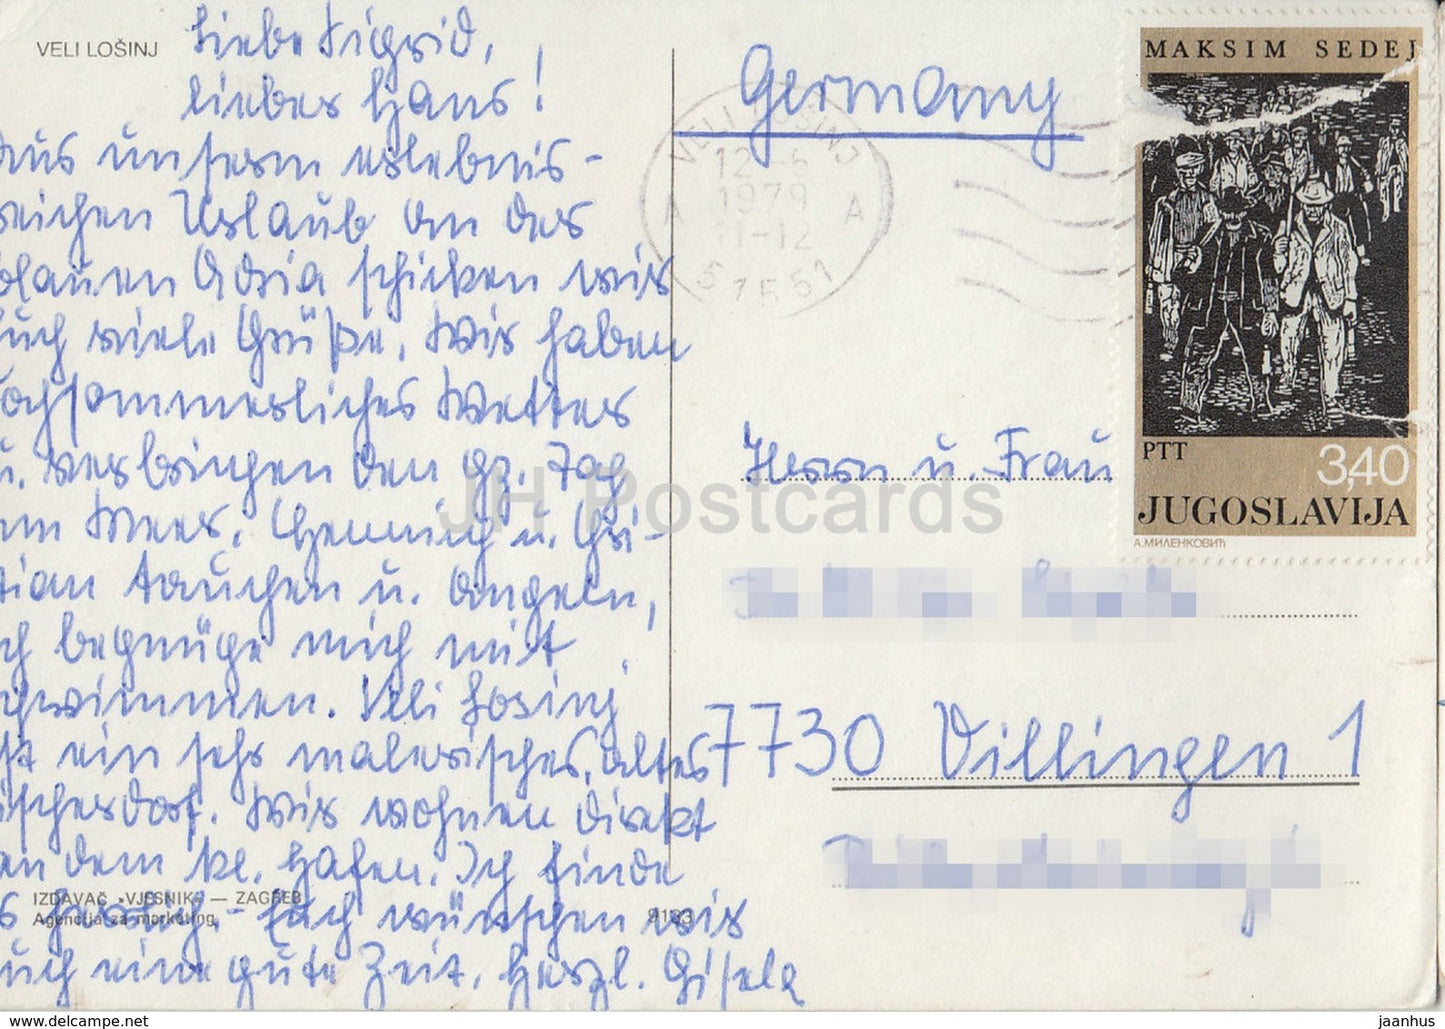 VELI LOŠINJ
Liebe Sigrid,
liebes Hans!
aus unserm erlebnis-
reichen Urlaub an der
blauen Adria schicken wir
Euch viele Grüße. Wir haben
hochsommerliches Wetter
u. verbringen den gz. Tag
am Meer. Henning u. Chri-
stian tauchen u. angeln,
ich begnüge mich mit
schwimmen. Veli Losinj
ist ein sehr malerisches, altes
Fischerdorf. Wir wohnen direkt
an dem kl. Hafen. Ich finde
es herrlich. - Euch wünschen wir
auch eine gute Zeit. Herzl. Gisela
IZDAVAČ »VJESNIK« — ZAGREB
Agencija za marketing
9133
Germany
VELI LOŠINJ
12-6
1979
11-12
A A
51551
MAKSIM SEDEJ
PTT
3,40
JUGOSLAVIJA
А.МИЛЕНКОВИЋ
Herrn u. Frau
7730 Villingen 1
JH Postcards
www.delcampe.net
jaanhus